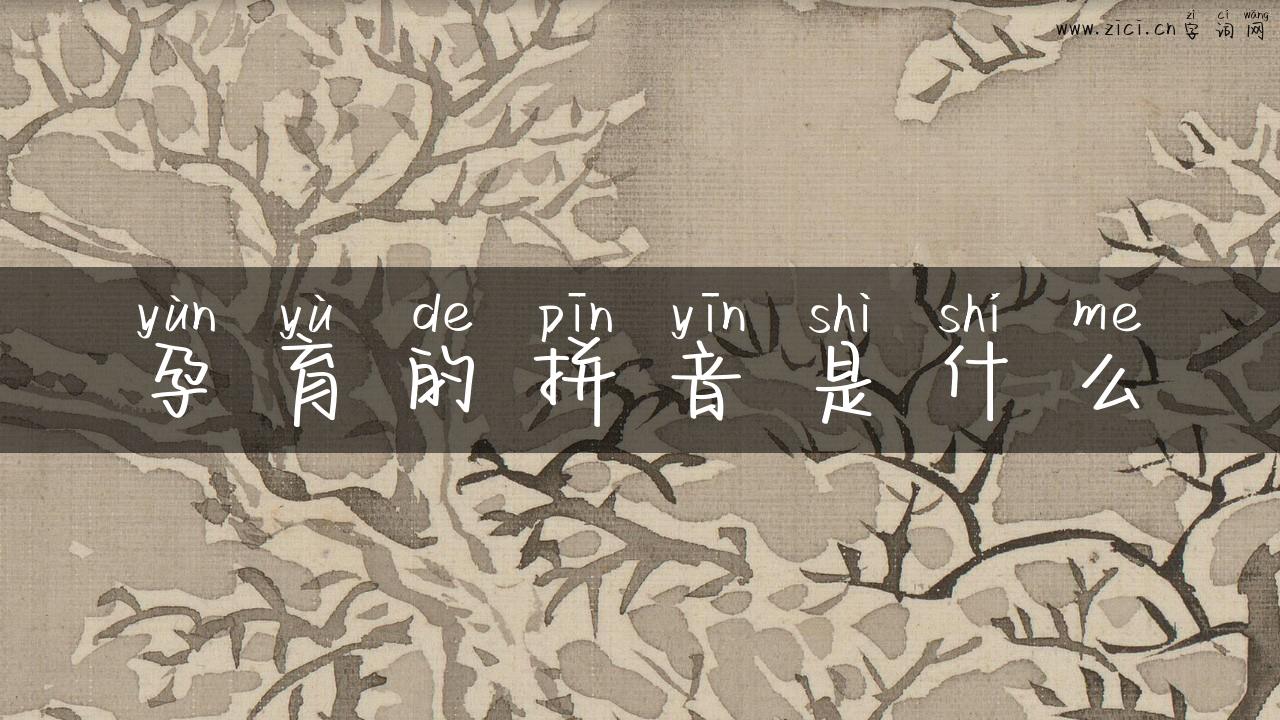 zì cí wǎng
www.zici.cn 字 词 网
yùn yù de pīn yīn shì shí me
孕 育 的 拼 音 是 什 么